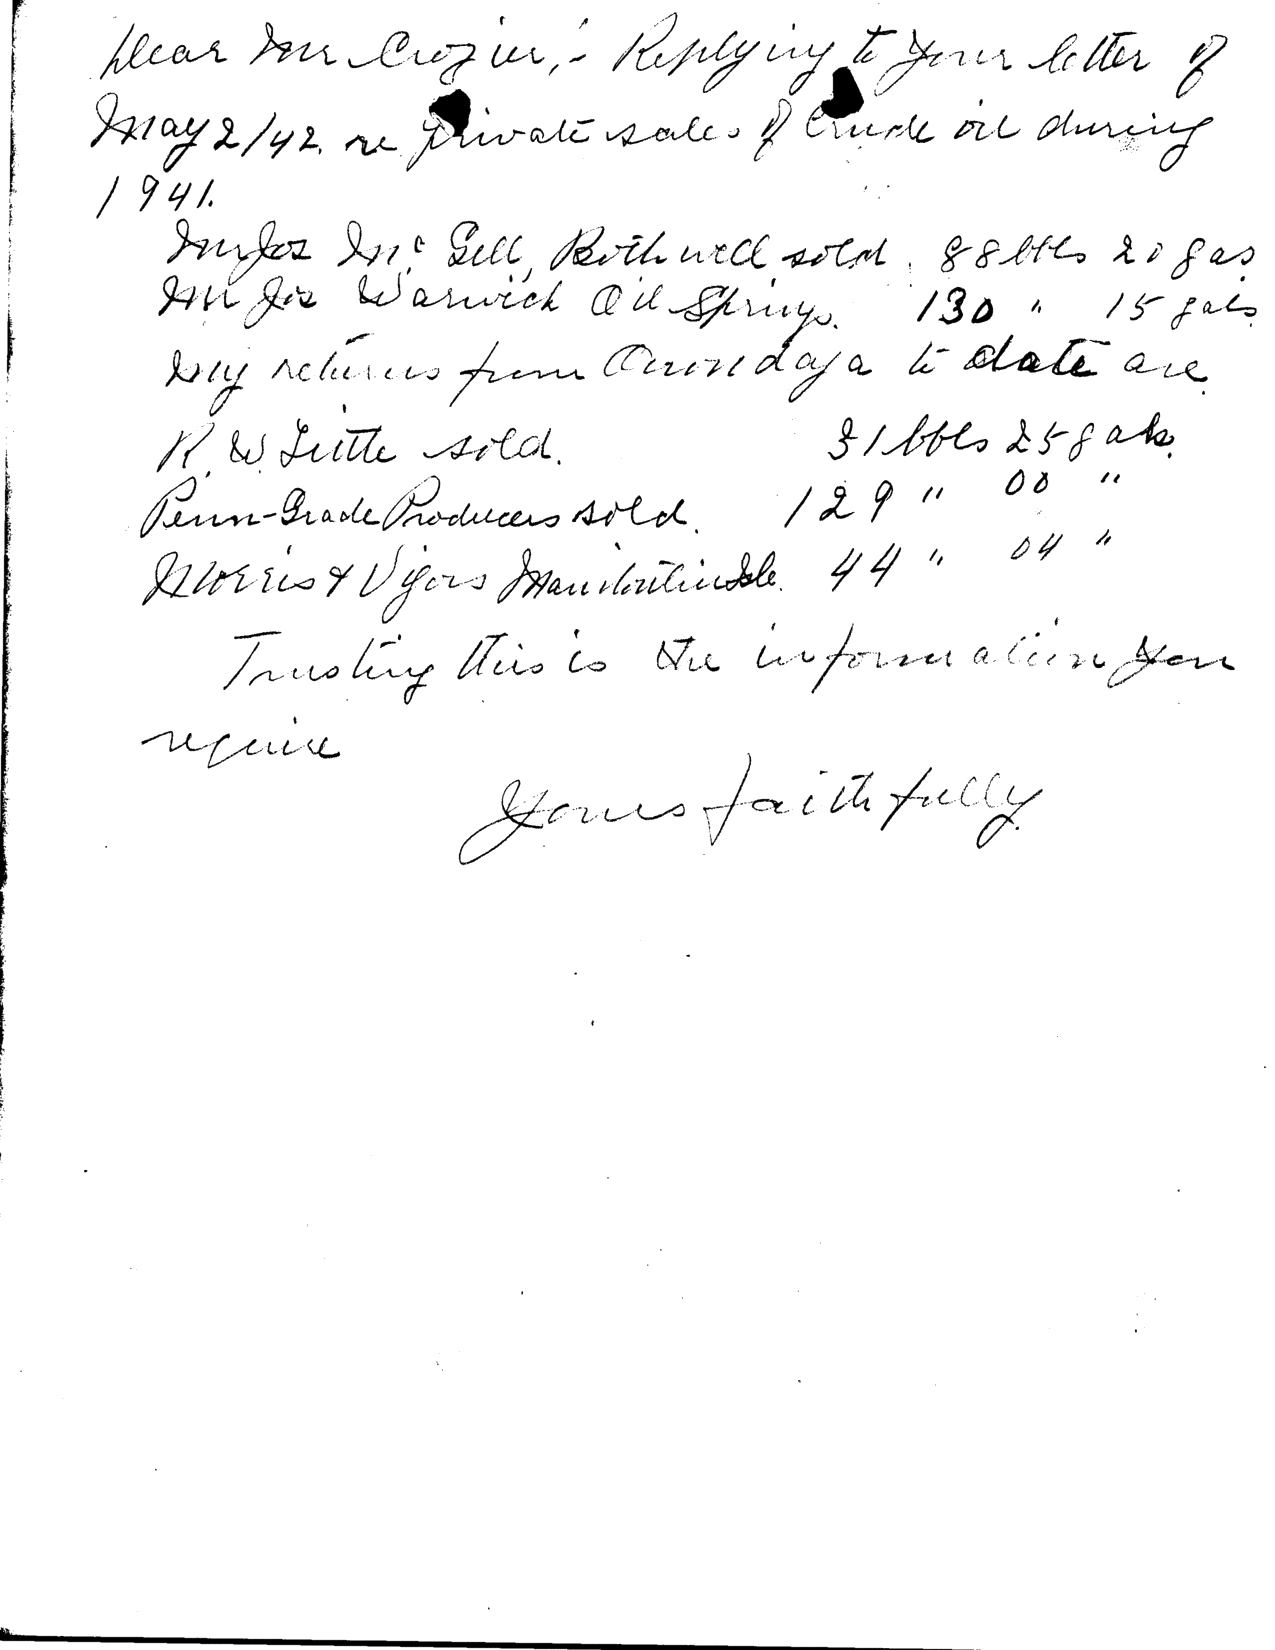 Dear Mr Crozier,- Replying to your letter of
May 2/42. re private sales of Crude oil during
1941.
Mr Jos McGill, Bothwell sold. 88 bbls 20 gas
Mr Jos Warwick Oil Springs. 130 " 15 gals.
My returns from Onondaga to date are.
R. W. Little sold. 31 bbls 25 gals.
Penn-Grade Producers sold. 129 " 00 "
Morris & Vigors Manitoulin Isle. 44 " 04 "
Trusting this is the information you
require
Yours faithfully.